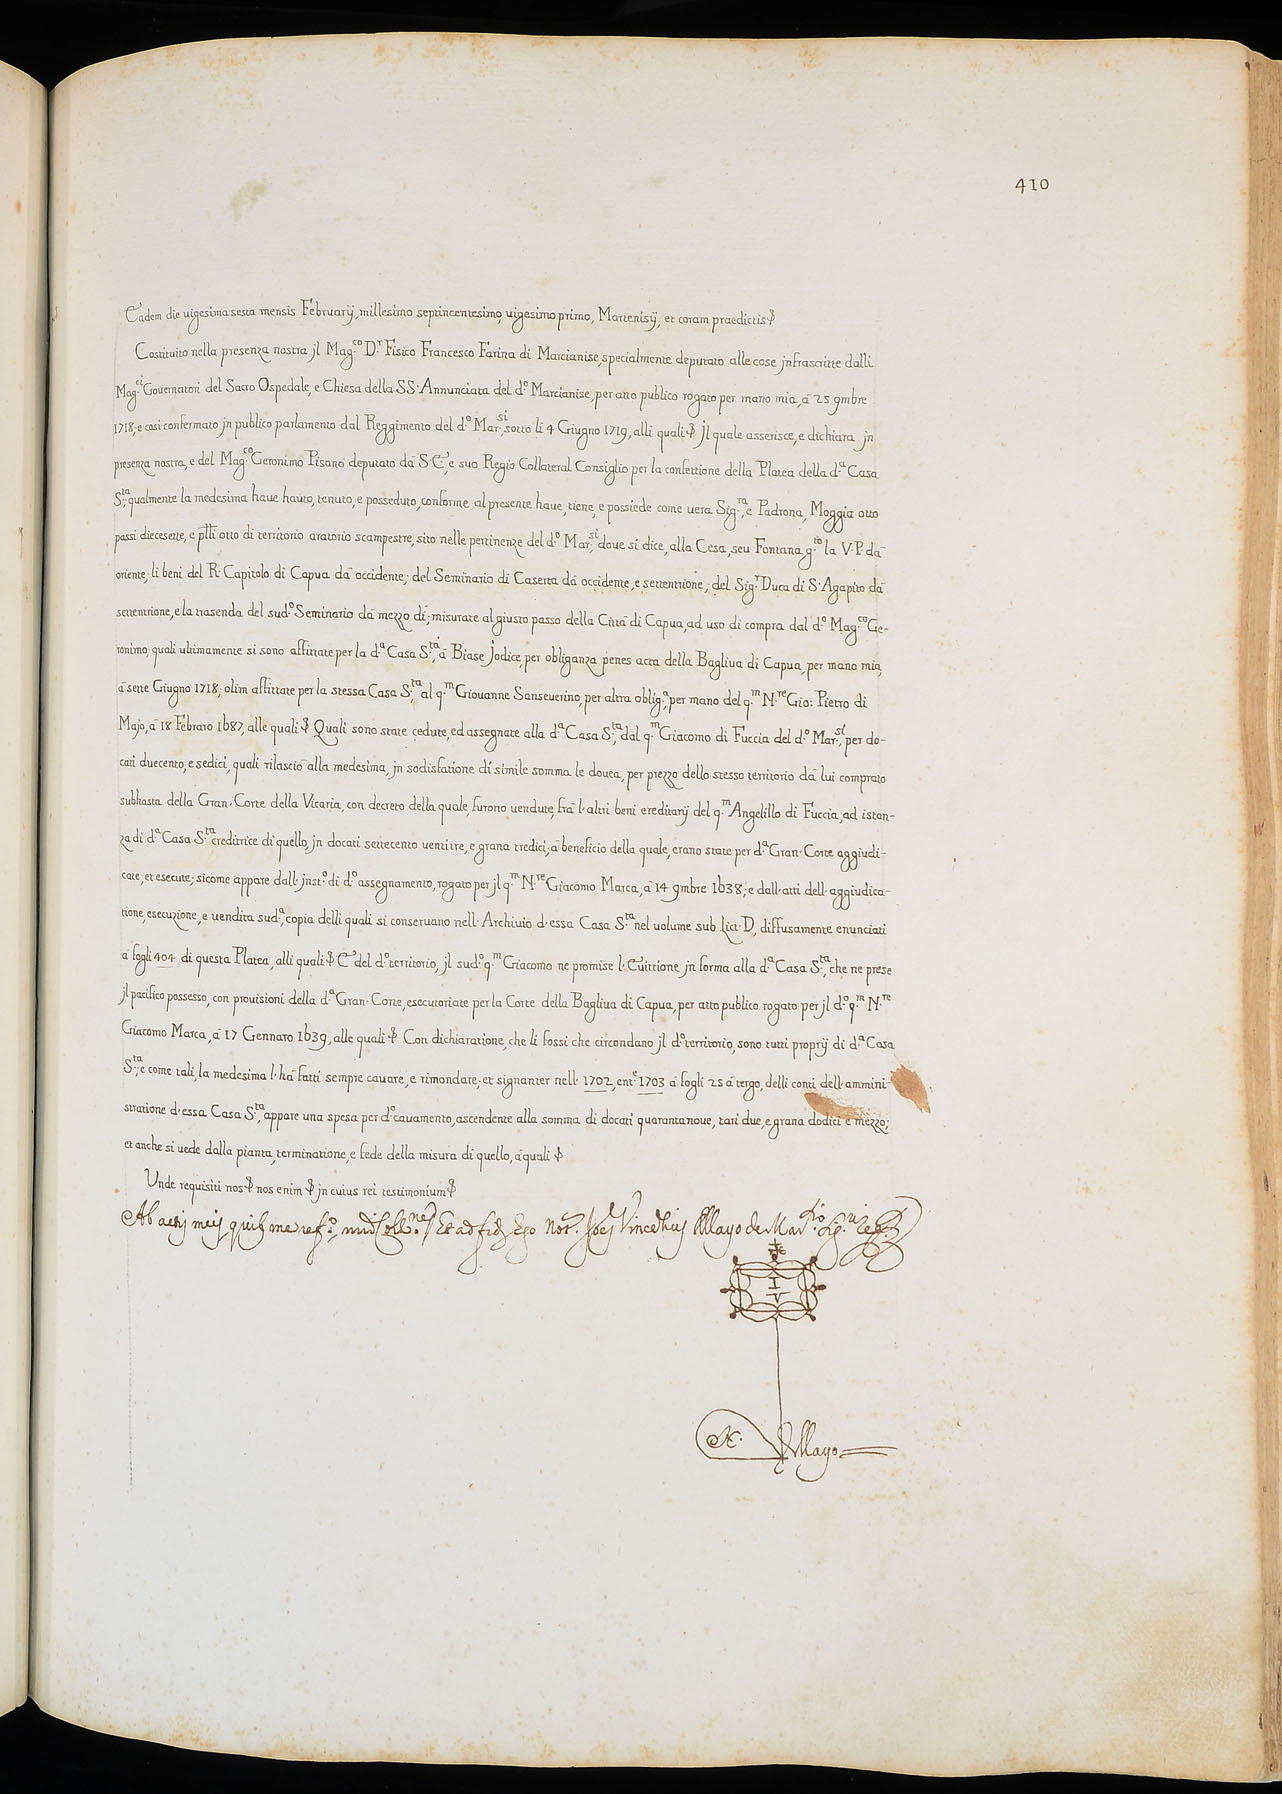 410
Eadem die uigesima sesta mensis Februarij, millesimo septincentesimo, uigesimo primo, Martenisij, et coram praedictis
Costituito nella presenza nostra jl Mag:co D:r Fisico Francesco Farina di Marcianise, specialmente deputato alle cose jnfrascritte dalli
Mag:ci Gouernatori del Sacro Ospedale, e Chiesa della SS: Annunciata del d:o Marcianise, per atto publico rogato per mano mia, à 25 9mbre
1718; e così confermato jn publico parlamento dal Reggimento del d:o Mar:si, sotto li 4 Giugno 1719, alli quali Jl quale asserisce, e dichiara jn
presenza nostra, e del Mag:co Geronimo Pisano deputato dà S: E:, e suo Regio Collateral Consiglio per la confettione della Platea della d:a Casa
S:ta; qualmente la medesima haue hauto, tenuto, e posseduto, conforme al presente haue, tiene, e possiede come uera Sig:ra, e Padrona, Moggia otto
passi diecesette, e p:tli otto di territorio aratorio scampestre, sito nelle pertinenze del d:o Mar:si, doue si dice, alla Cesa, seu Fontana, g:to la V: P: dà
oriente; li beni del R: Capitolo di Capua dà occidente; del Seminario di Caserta dà occidente, e settentrione; del Sig:r Duca di S: Agapito dà
settentrione, e la trasenda del sud:o Seminario dà mezzo dì; misurate al giusto passo della Città di Capua, ad uso di compra dal d:o Mag:co Ge-
ronimo; quali ultimamente si sono affittate per la d:a Casa S:ta, à Biase Jodice, per obliganza penes acta della Bagliua di Capua, per mano mia,
à sette Giugno 1718; olim affittate per la stessa Casa S:ta al q:m Giouanne Sanseuerino, per altra oblig:a, per mano del q:m N:re Gio: Pietro di
Majo, à 18 Febraro 1687, alle quali Quali sono state cedute, ed assegnate alla d:a Casa S:ta, dal q:m Giacomo di Fuccia del d:o Mar:si, per do-
cati duecento, e sedici, quali rilasciò alla medesima, jn sodisfatione di simile somma le douea, per prezzo dello stesso territorio dà lui comprato
subhasta della Gran: Corte della Vicaria, con decreto della quale, furono uendute, frà l: altri beni ereditarij del q:m Angelillo di Fuccia, ad istan-
za di d:a Casa S:ta creditrice di quello, jn docati settecento uentitre, e grana tredici; à beneficio della quale, erano state per d:a Gran: Corte aggiudi-
cate, et esecute; sicome appare dall: jnst:o di d:o assegnamento, rogato per jl q:m N:re Giacomo Marca, à 14 9mbre 1638; e dall: atti dell: aggiudica-
tione, esecuzione, e uendita sud:a, copia delli quali si conseruano nell: Archiuio d: essa Casa S:ta nel uolume sub Lict: D, diffusamente enunciati
à fogli 404 di questa Platea, alli quali E del d:o territorio, jl sud:o q:m Giacomo ne promise l: Euittione jn forma alla d:a Casa S:ta, che ne prese
jl pacifico possesso, con prouisioni della d:a Gran: Corte, esecutoriate per la Corte della Bagliua di Capua, per atto publico rogato per jl d:o q:m N:re
Giacomo Marca, à 17 Gennaro 1639, alle quali Con dichiaratione, che li fossi che circondano jl d:o territorio, sono tutti proprij di d:a Casa
S:ta; e come tali, la medesima l: hà fatti sempre cauare, e rimondare; et signanter nell: 1702, ent:e 1703 à fogli 25 à tergo, delli conti dell: ammini
stratione d: essa Casa S:ta, appare una spesa per d:o cauamento, ascendente alla somma di docati quarantanoue, tarì due, e grana dodici e mezzo;
et anche si uede dalla pianta, terminatione, e fede della misura di quello, à quali
Unde requisiti nos nos enim jn cuius rei testimonium
Ab actis meis, Et ad fidem Ego Not:s Vincentius Mayo de
I
V
N: Mayo